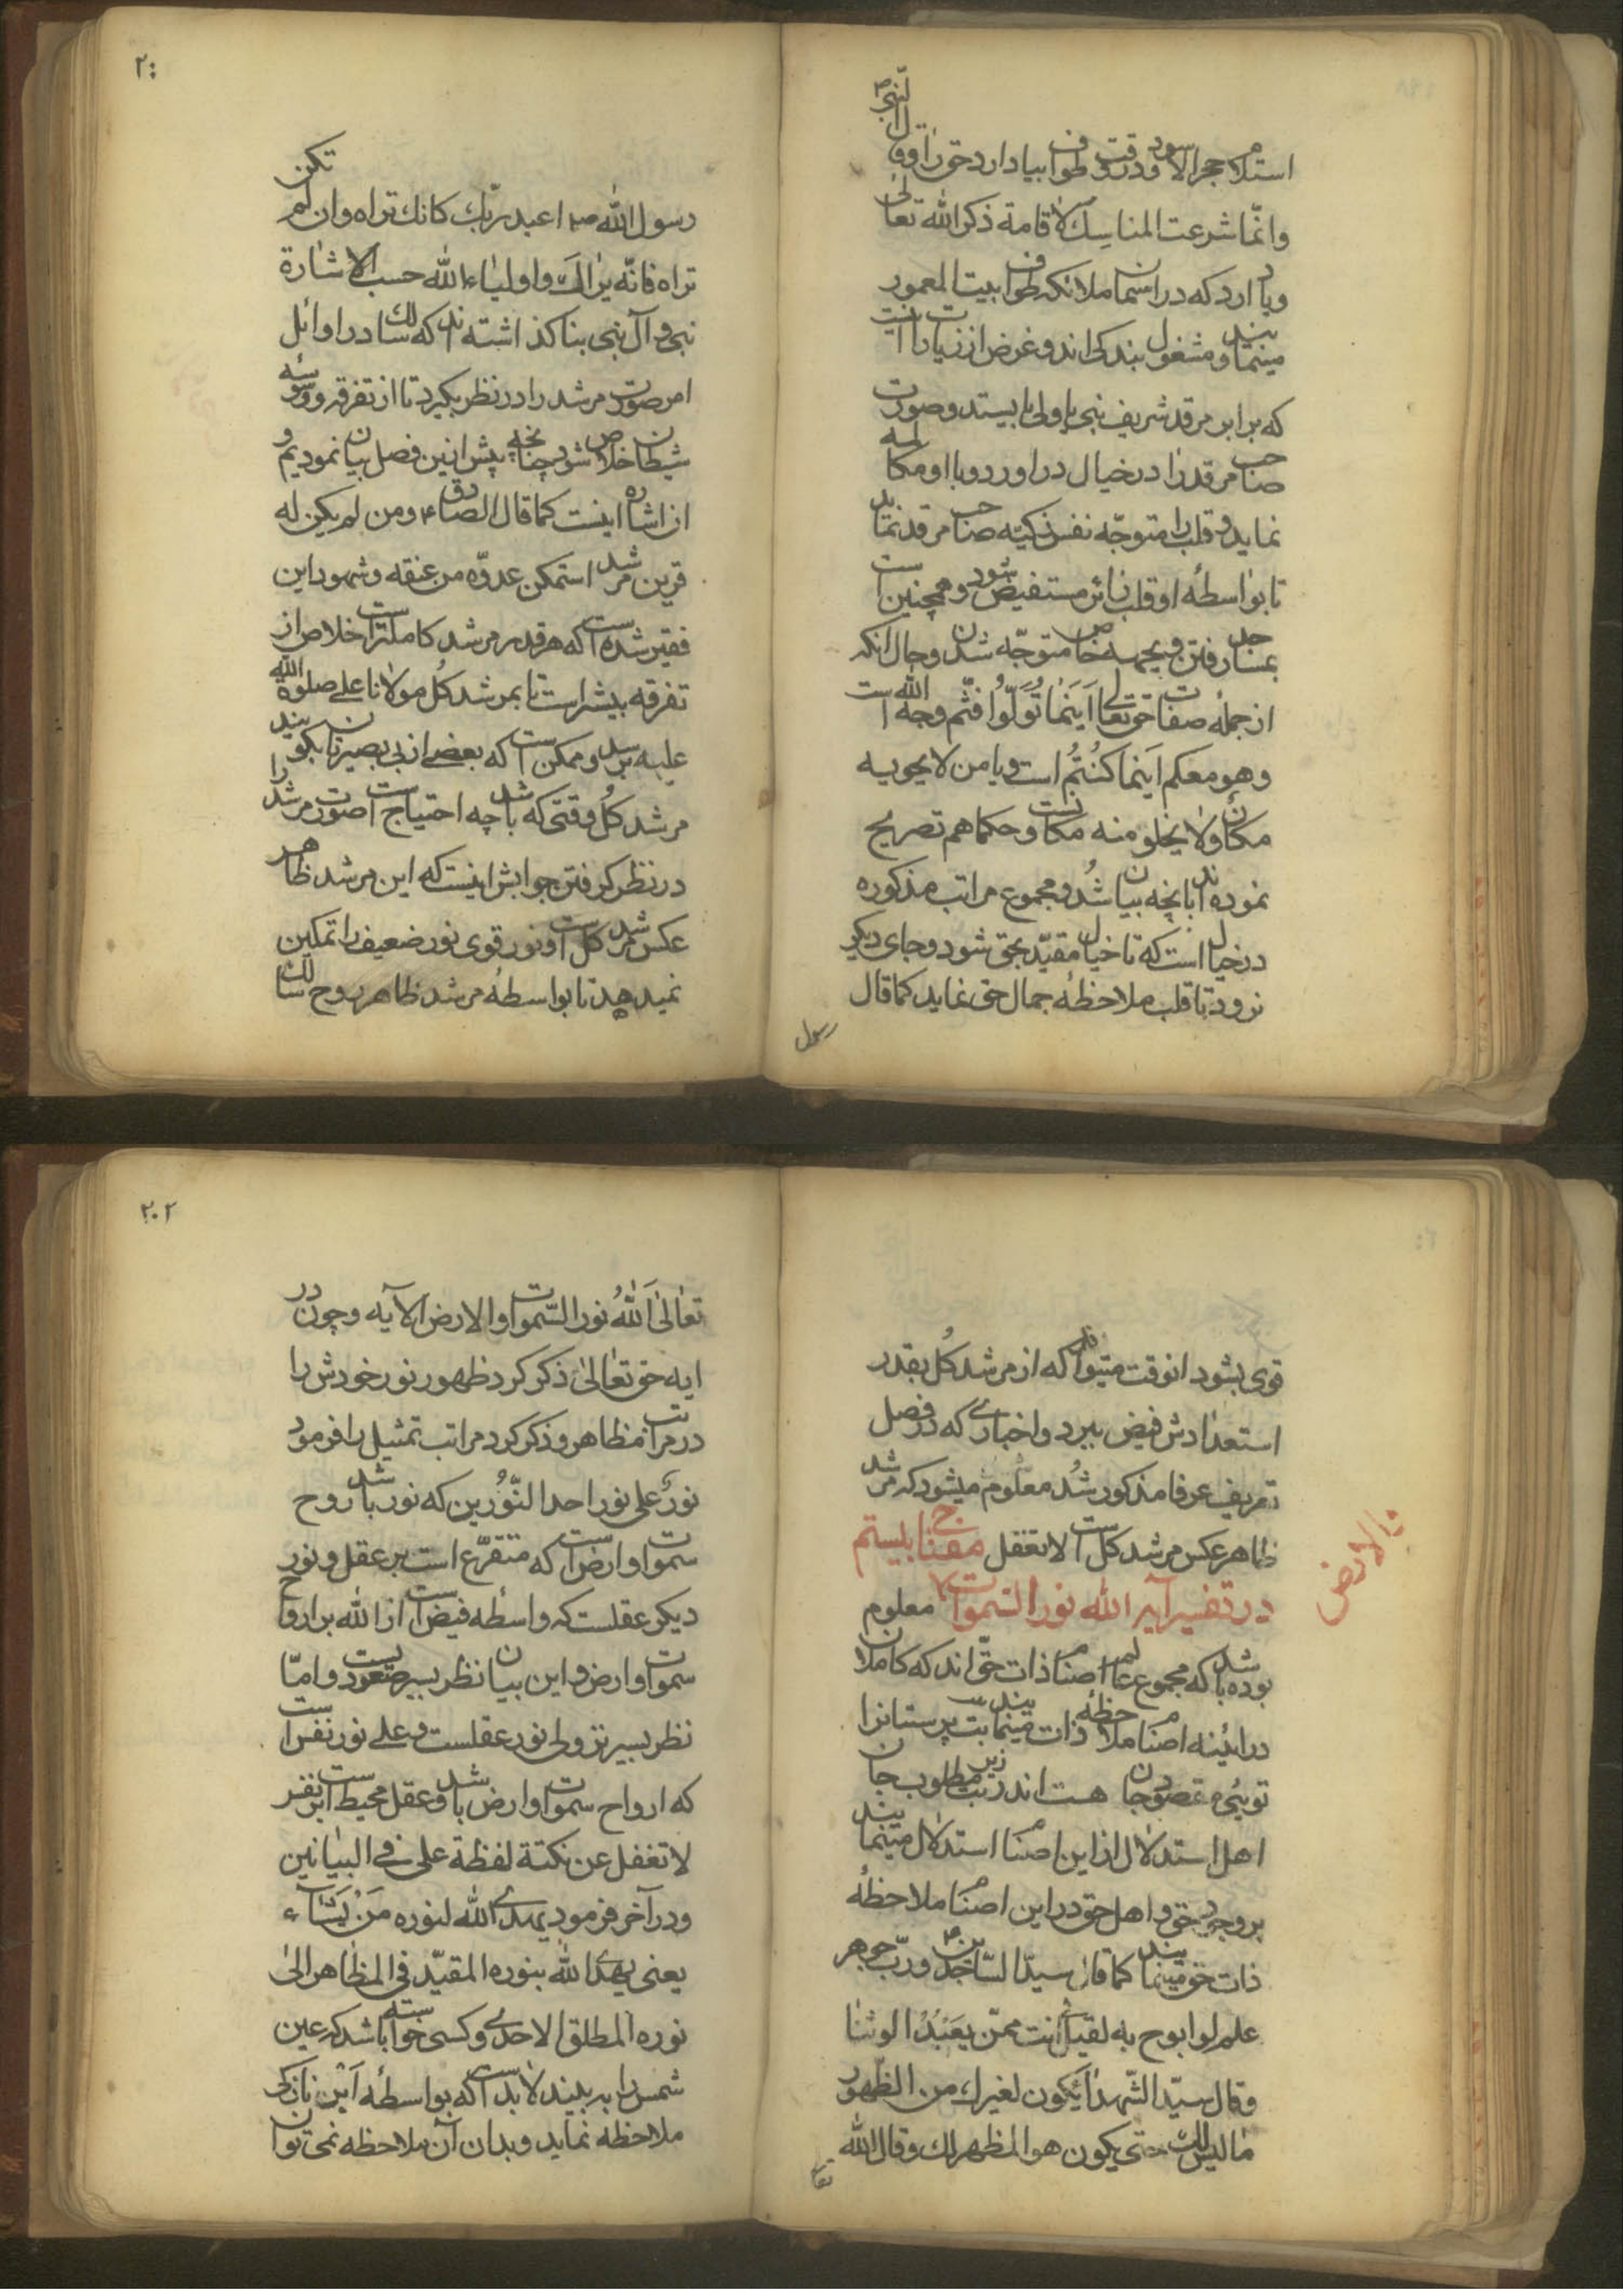 استلام حجر الاسود در وقت طواف بیاد ارد حق را و قال النبی ص
وانّما شرعت المناسك لاقامة ذکر الله تعالی
و یاد ارد که در اسمان ملائکه طواف بیت المعمور
مینمایند و مشغول بندکی اند و غرض از زیارات اینست
که برابر مرقد شریف نبی یا ولی بایستد و صورت
صاحب مرقد را در خیال در اورد و با او مکالمه
نماید و قلب را متوجّه نفس زکیّه صاحب مرقد نماید
تا بواسطهٔ او قلب زائر مستفیض شود و همچنین است
بمساجد رفتن و بجهه خاص متوجّه شدن و حال انکه
از جملهٔ صفات حق تعالی اَیَنَمٰا تُوَلّوُا فثّم وجه الله است
و هو معکم اَینما کُنتُم است و یا من لا یحویه
مکان ولا یخلو منه مکانست و حکما هم تصریح
نموده اند بانچه بیان شُد و مجموع مراتب مذکوره
در خیال است که تا خیال مقیّد بحق شود و جای دیکر
نرود تا قلب ملاحظهٔ جمال حق نماید کما قال
رسول
۲۰
رسول الله ص اعبد ربّك کانك تراه وان لم تکن
تراه فانّه یراك و اولیاء الله حسب الاشارة
نبی و آل نبی بنا کذاشته اند که سالك در اوائل
امر صورت مرشد را در نظر بکیرد تا از تفرقه و وسوسهٔ
شیطان خلاص شود چنانچه پیش از این فصل بیان نمودیم و
از اشاره اینست کما قال الصادق ع و من لم یکن له
قرین مرشد استمکن عدوّه من عنقه و شهود این
فقیر شده است که هر قدر مرشد کاملتر است خلاص از
تفرقه بیشتر است تا بمرشد کُل مولانا علی صلوة الله
علیه برسد و ممکن است که بعضی از بی بصیرتان بکویند
مرشد کُل وقتی که باشد چه احتیاج است صورت مرشد را
در نظر کرفتن جوابش اینست که این مرشد ظاهر
عکس مرشد کل است و نور قوی نور ضعیف را تمکین
نمیدهد تا بواسطهٔ مرشد ظاهر روح سالك
قوی بشود انوقت میتواند که از مرشد کُل بقدر
استعدادش فیض ببرد و اخباری که در فصل
تعریف عرفا مذکور شُد معلوم میشود که مرشد
ظاهر عکس مرشد کل است لا تغفل مفتاح بیستم
در تفسیر آیه الله نور السّموات معلوم
والارض
بوده باشد که مجموع عالم اصنام ذات حق اند که کاملان
در ائینه اصنام ملاحظهٔ ذات مینمایند بت پرستانرا
توئی مقصود جان هست اندر زیر بت مطلوب جان
اهل استدلال از این اصنام استدلال مینمایند
بر وجود حق و اهل حق در این اصنام ملاحظهٔ
ذات حق مینمایند کما قال سیدّ السّاجدین ع و ربّ جوهر
علم لو ابوح به لقیل لی انت ممّن یعَبُدُ الوثنٰا
وقال سیّد الشّهدٰا اَیکون لغیرك من الظّهور
مٰا لیس لك حتی یکون هو المظهر لك و قال الله
تعا
۲۰۲
تعٰالیٰ اَللّٰهُ نور السّموات والارض الآیه و چون در
ایه حق تعٰالیٰ ذکر کرد ظهور نور خودش را
در مراتب مظاهر و ذکر کرد مراتب تمثیل را فرمود
نورٌ علی نور احد النّوُرین که نور باشد روح
سموات و ارض است که متفرّع است بر عقل و نور
دیکر عقلست که واسطهٔ فیض است از الله بر ارواح
سموات و ارض و این بیان نظر بسیر صعودیست و امّا
نظر بسیر نزولی نور عقلست و علی نور نفس است
که ارواح سموات و ارض باشد و عقل محیط است بر نفس
لا تغفل عن نکتة لفظة علی فی البیانین
و در آخر فرمود یهدی الله لنوره مَنْ یَشآء
یعنی یهدی الله بنوره المقیّد فی المظاهر الیٰ
نوره المطلق الاحدی و کسی خواسته باشد که عین
شمس را به بیند لابدّ است که بواسطهٔ آین نازکی
ملاحظه نماید و بدان آن ملاحظه نمی توان